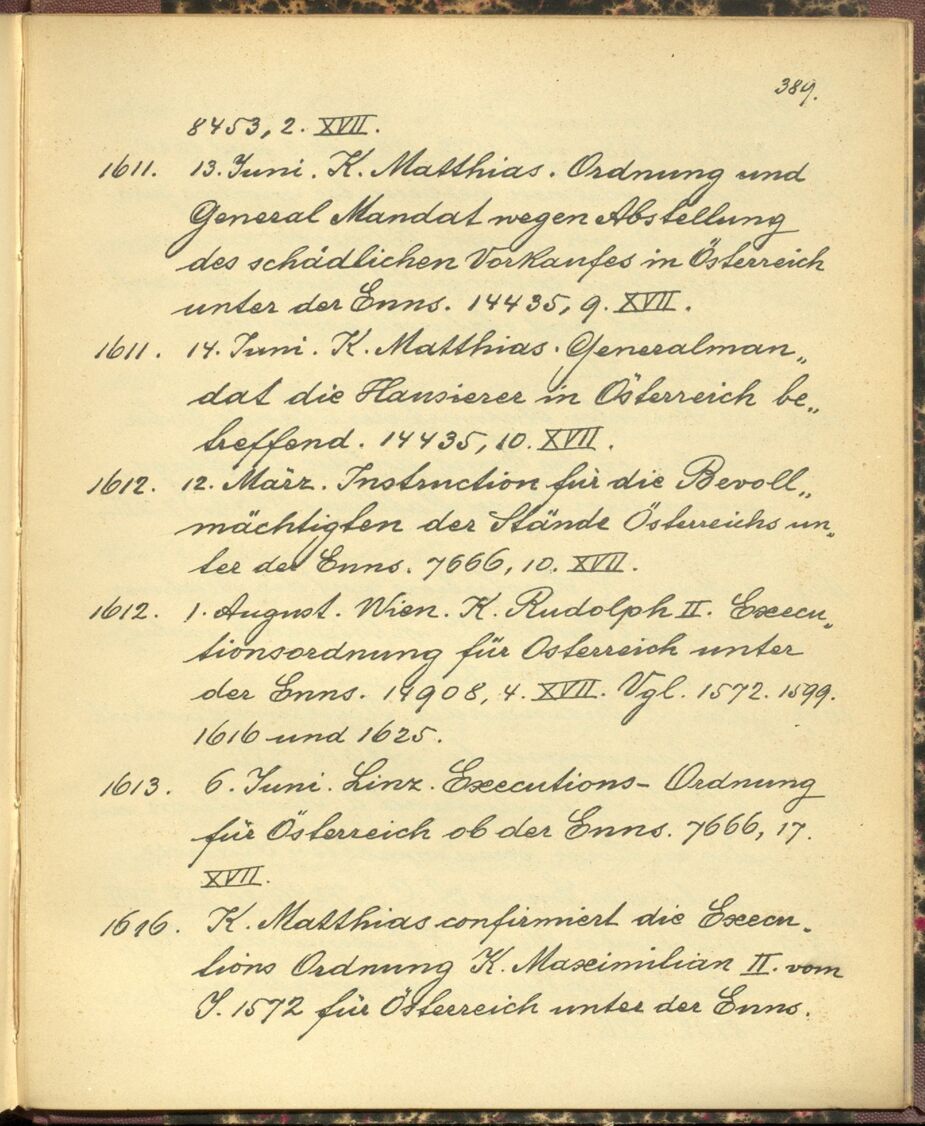 389.
8453, 2. XVII.
1611. 13. Juni. K. Matthias. Ordnung und
General Mandat wegen Abstellung
des schädlichen Vorkaufes in Österreich
unter der Enns. 14435, 9. XVII.
1611. 14. Juni. K. Matthias. Generalman„
dat die Hausierer in Österreich be„
treffend. 14435, 10. XVII.
1612. 12. März. Instruction für die Bevoll„
mächtigten der Stände Österreichs un„
ter der Enns. 7666, 10. XVII.
1612. 1. August. Wien. K. Rudolph II. Execu„
tionsordnung für Österreich unter
der Enns. 14908, 4. XVII. Vgl. 1572. 1599.
1616 und 1625.
1613. 6. Juni. Linz. Executions- Ordnung
für Österreich ob der Enns. 7666, 17.
XVII.
1616. K. Matthias confirmiert die Execu„
tions Ordnung K. Maximilian II. vom
J. 1572 für Österreich unter der Enns.